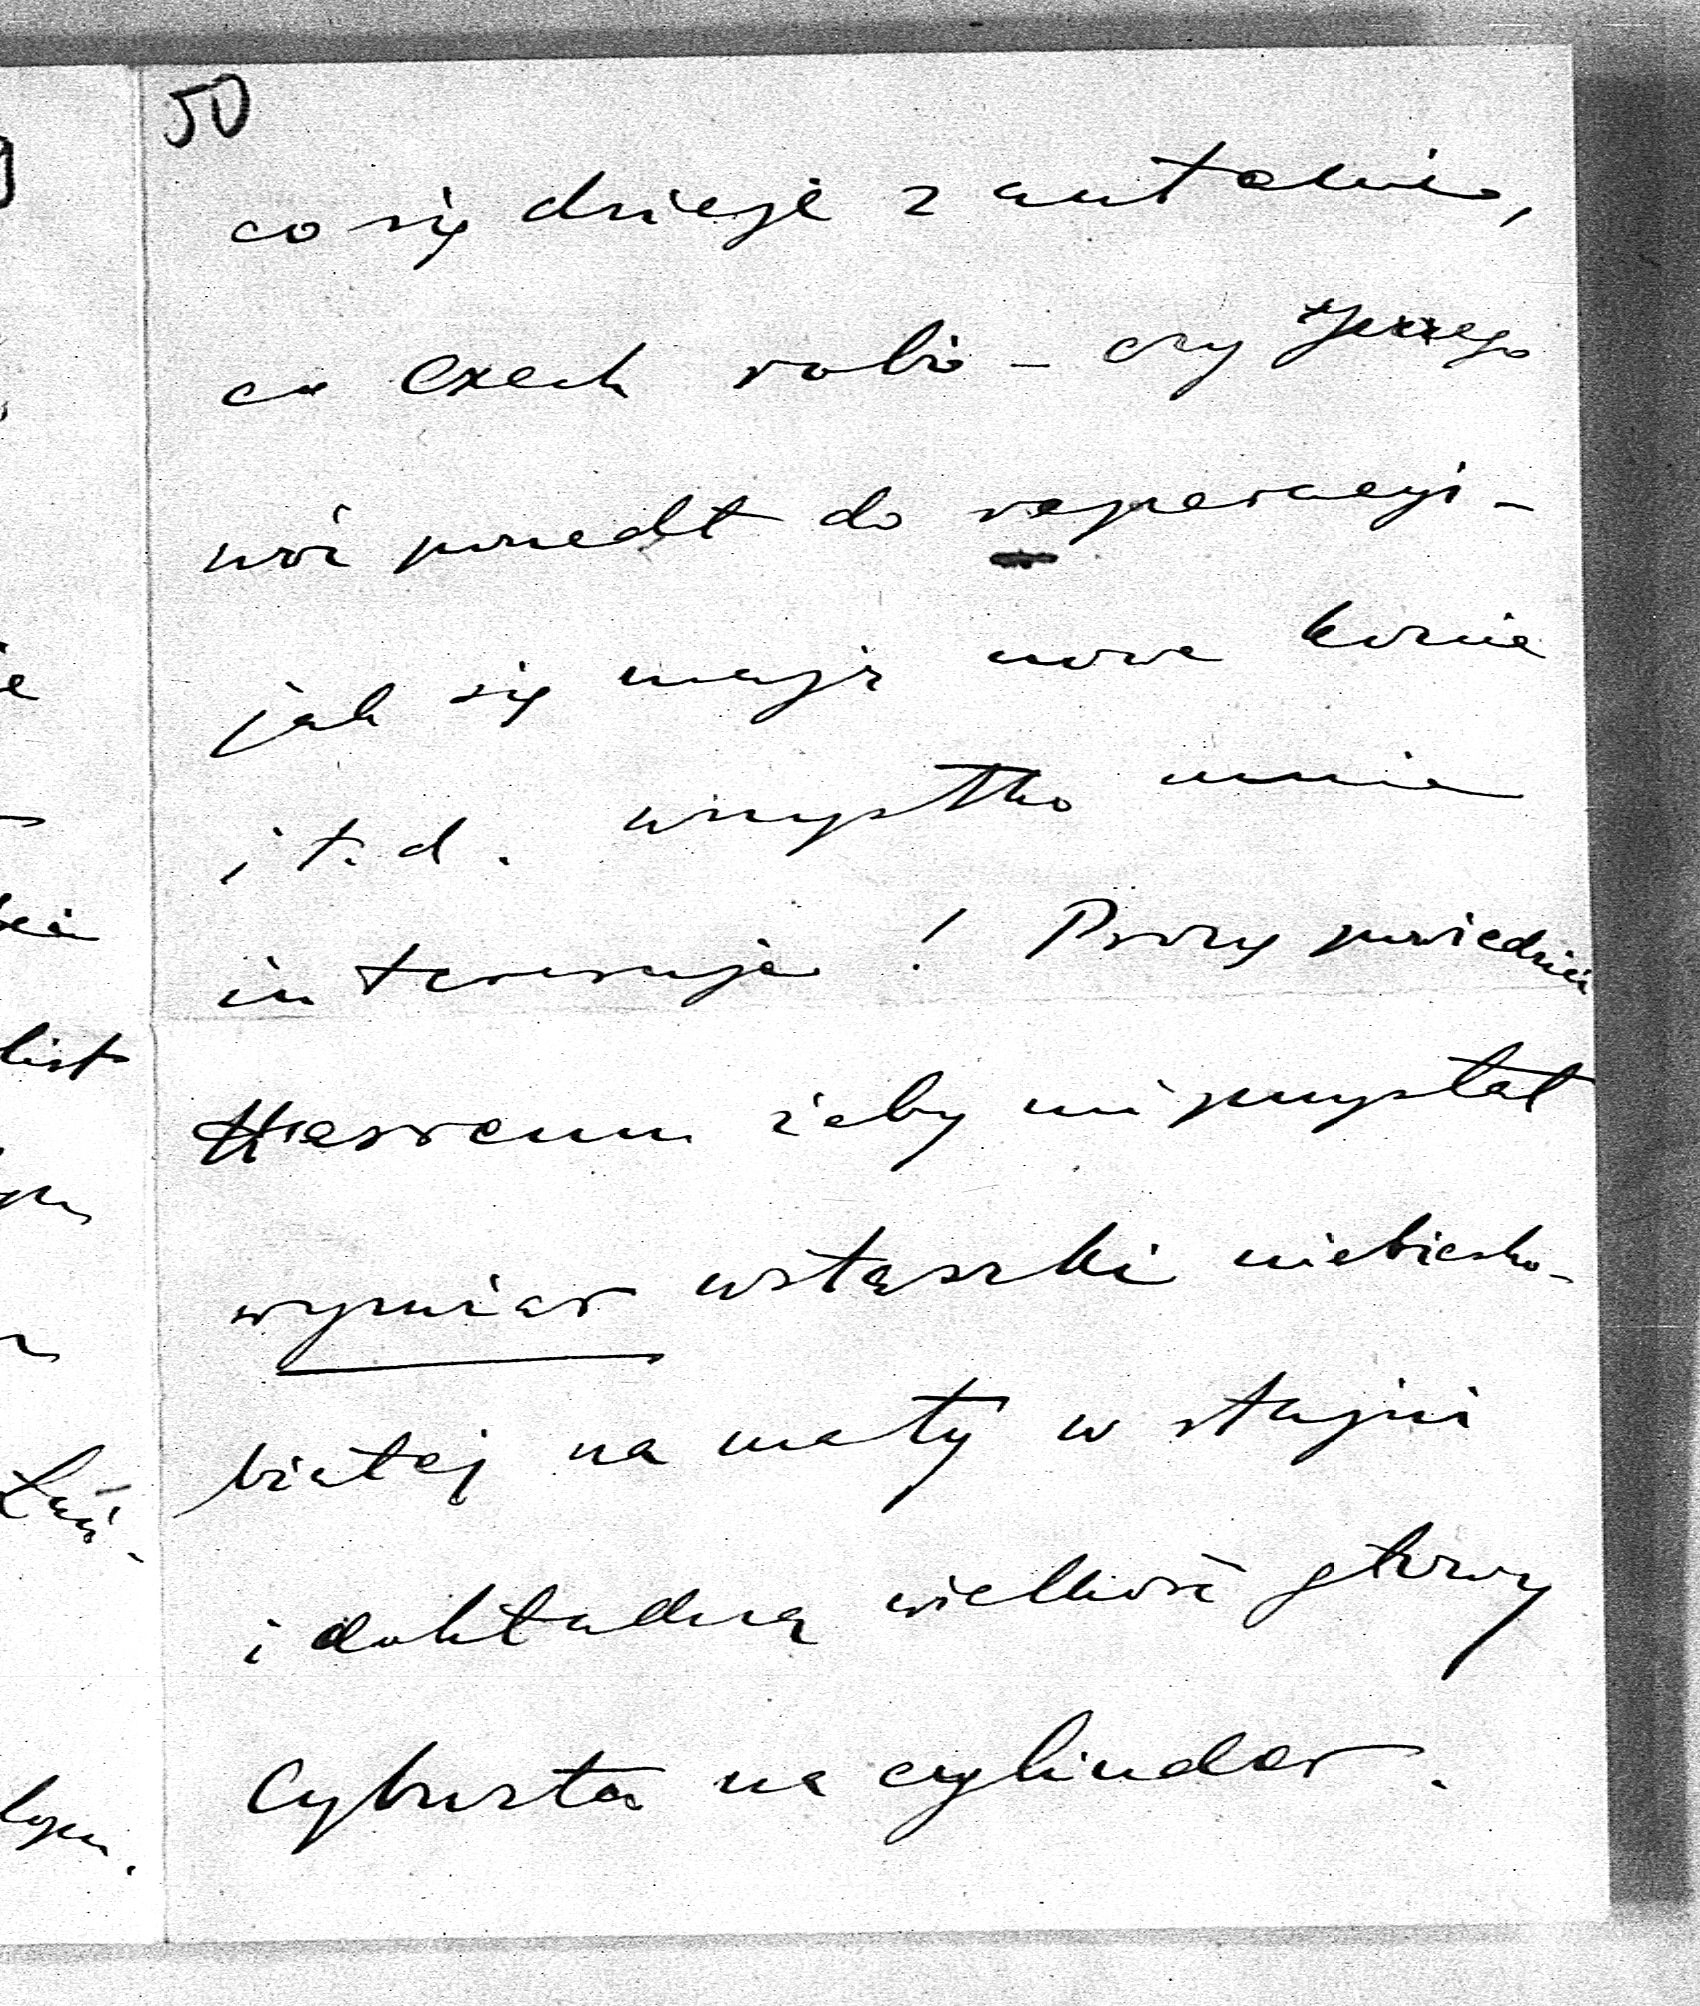 50
co się dzieje z autami,
co Czech robi – czy Jerzego
wóz poszedł do reperacyi –
jak się mają nowe konie
i t. d. wszystko mnie
interesuje! Proszę powiedzieć
żeby mi przysłał
wymiar wstążki niebiesko-
białej na maty w stajni
i dokładną wielkość głowy
na cylinder.
list